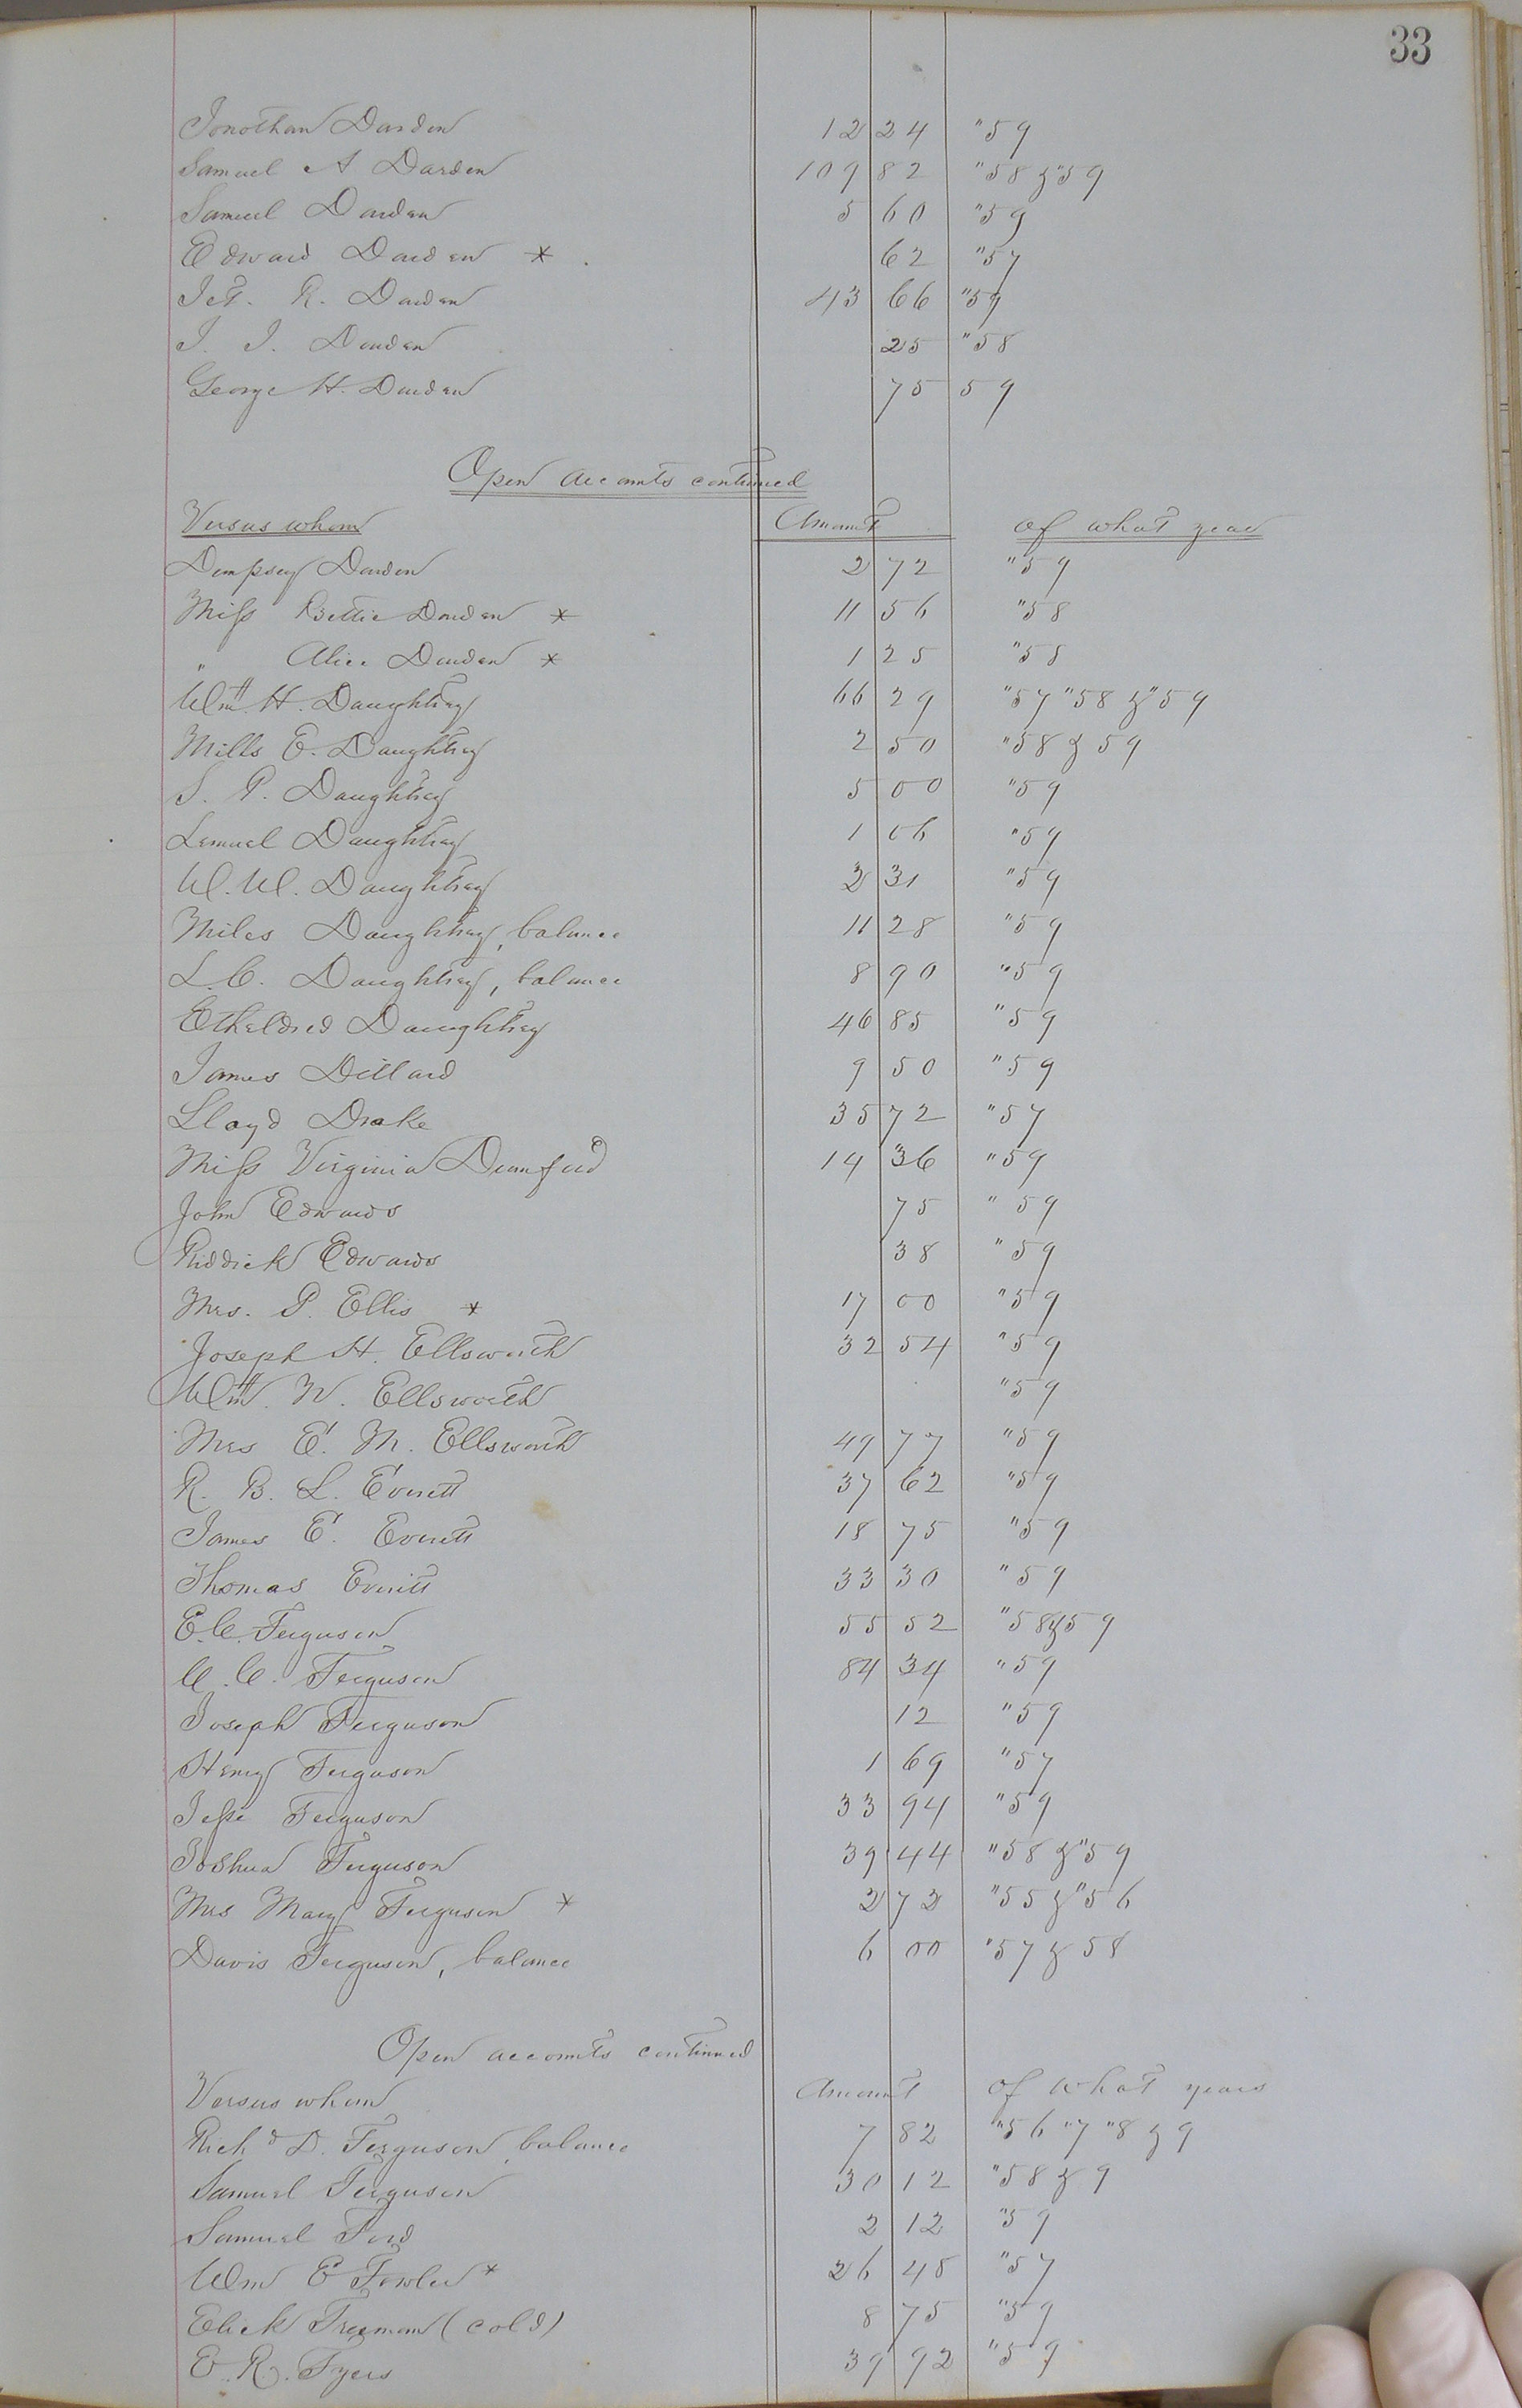 33
Jonothan Darden 12 24 "59
Samuel A Darden 109 82 "58 & "59
Samuel Darden 5 60 "59
Edward Darden * 62 "57
Jet. R. Darden 43 66 "59
J. J. Darden 25 "58
George H. Darden 75 59
Open accounts continued
Versus whom Amount of what year
Dempsey Darden 2 72 "59
Miss Bettie Darden * 11 56 "58
" Alice Darden * 1 25 "58
Wm. H. Daughtrey 66 29 "57 "58 & "59
Mills E. Daughtrey 2 50 "58 & 59
S. P. Daughtrey 5 00 "59
Lemuel Daughtrey 1 06 "59
W. W. Daughtrey 2 31 "59
Miles Daughtrey, balance 11 28 "59
L. C. Daughtrey, balance 8 90 "59
Etheldred Daughtrey 46 85 "59
James Dillard 9 50 "59
Lloyd Drake 35 72 "57
Miss Virginia Dunford 14 36 "59
John Edwards 75 "59
Riddick Edwards 38 "59
Mrs. P. Ellis * 17 00 "59
Joseph H. Ellsworth 32 54 "59
Wm. W. Ellsworth "59
Mrs E. M. Ellsworth 49 77 "59
R. B. L. Everett 37 62 "59
James E. Everett 18 75 "59
Thomas Everitt 33 30 "59
E. C. Ferguson 55 52 "58 & 59
C. C. Ferguson 84 34 "59
Joseph Ferguson 12 "59
Henry Ferguson 1 69 "57
Jesse Ferguson 33 94 "59
Joshua Ferguson 39 44 "58 & "59
Mrs Mary Ferguson * 2 72 "55 & "56
Davis Ferguson, balance 6 00 "57 & 58
Open accounts continued
Versus whom Amount of what years
Richd D. Ferguson, balance 7 82 "56 "7 "8 & 9
Samuel Ferguson 30 12 "58 & 9
Samuel Ford 2 12 "59
Wm E Fowler * 26 48 "57
Elick Freeman (cold) 8 75 "59
E. R. Fyers 39 92 "59